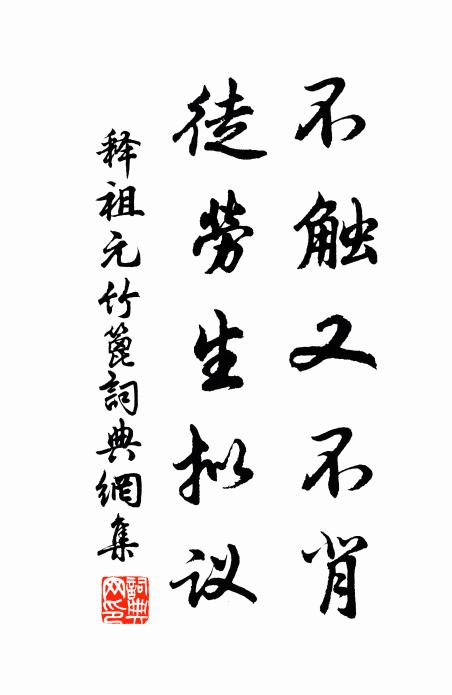 不触又不背
徒勞生拟议
释祖元竹篦詞典網集
詞典网印